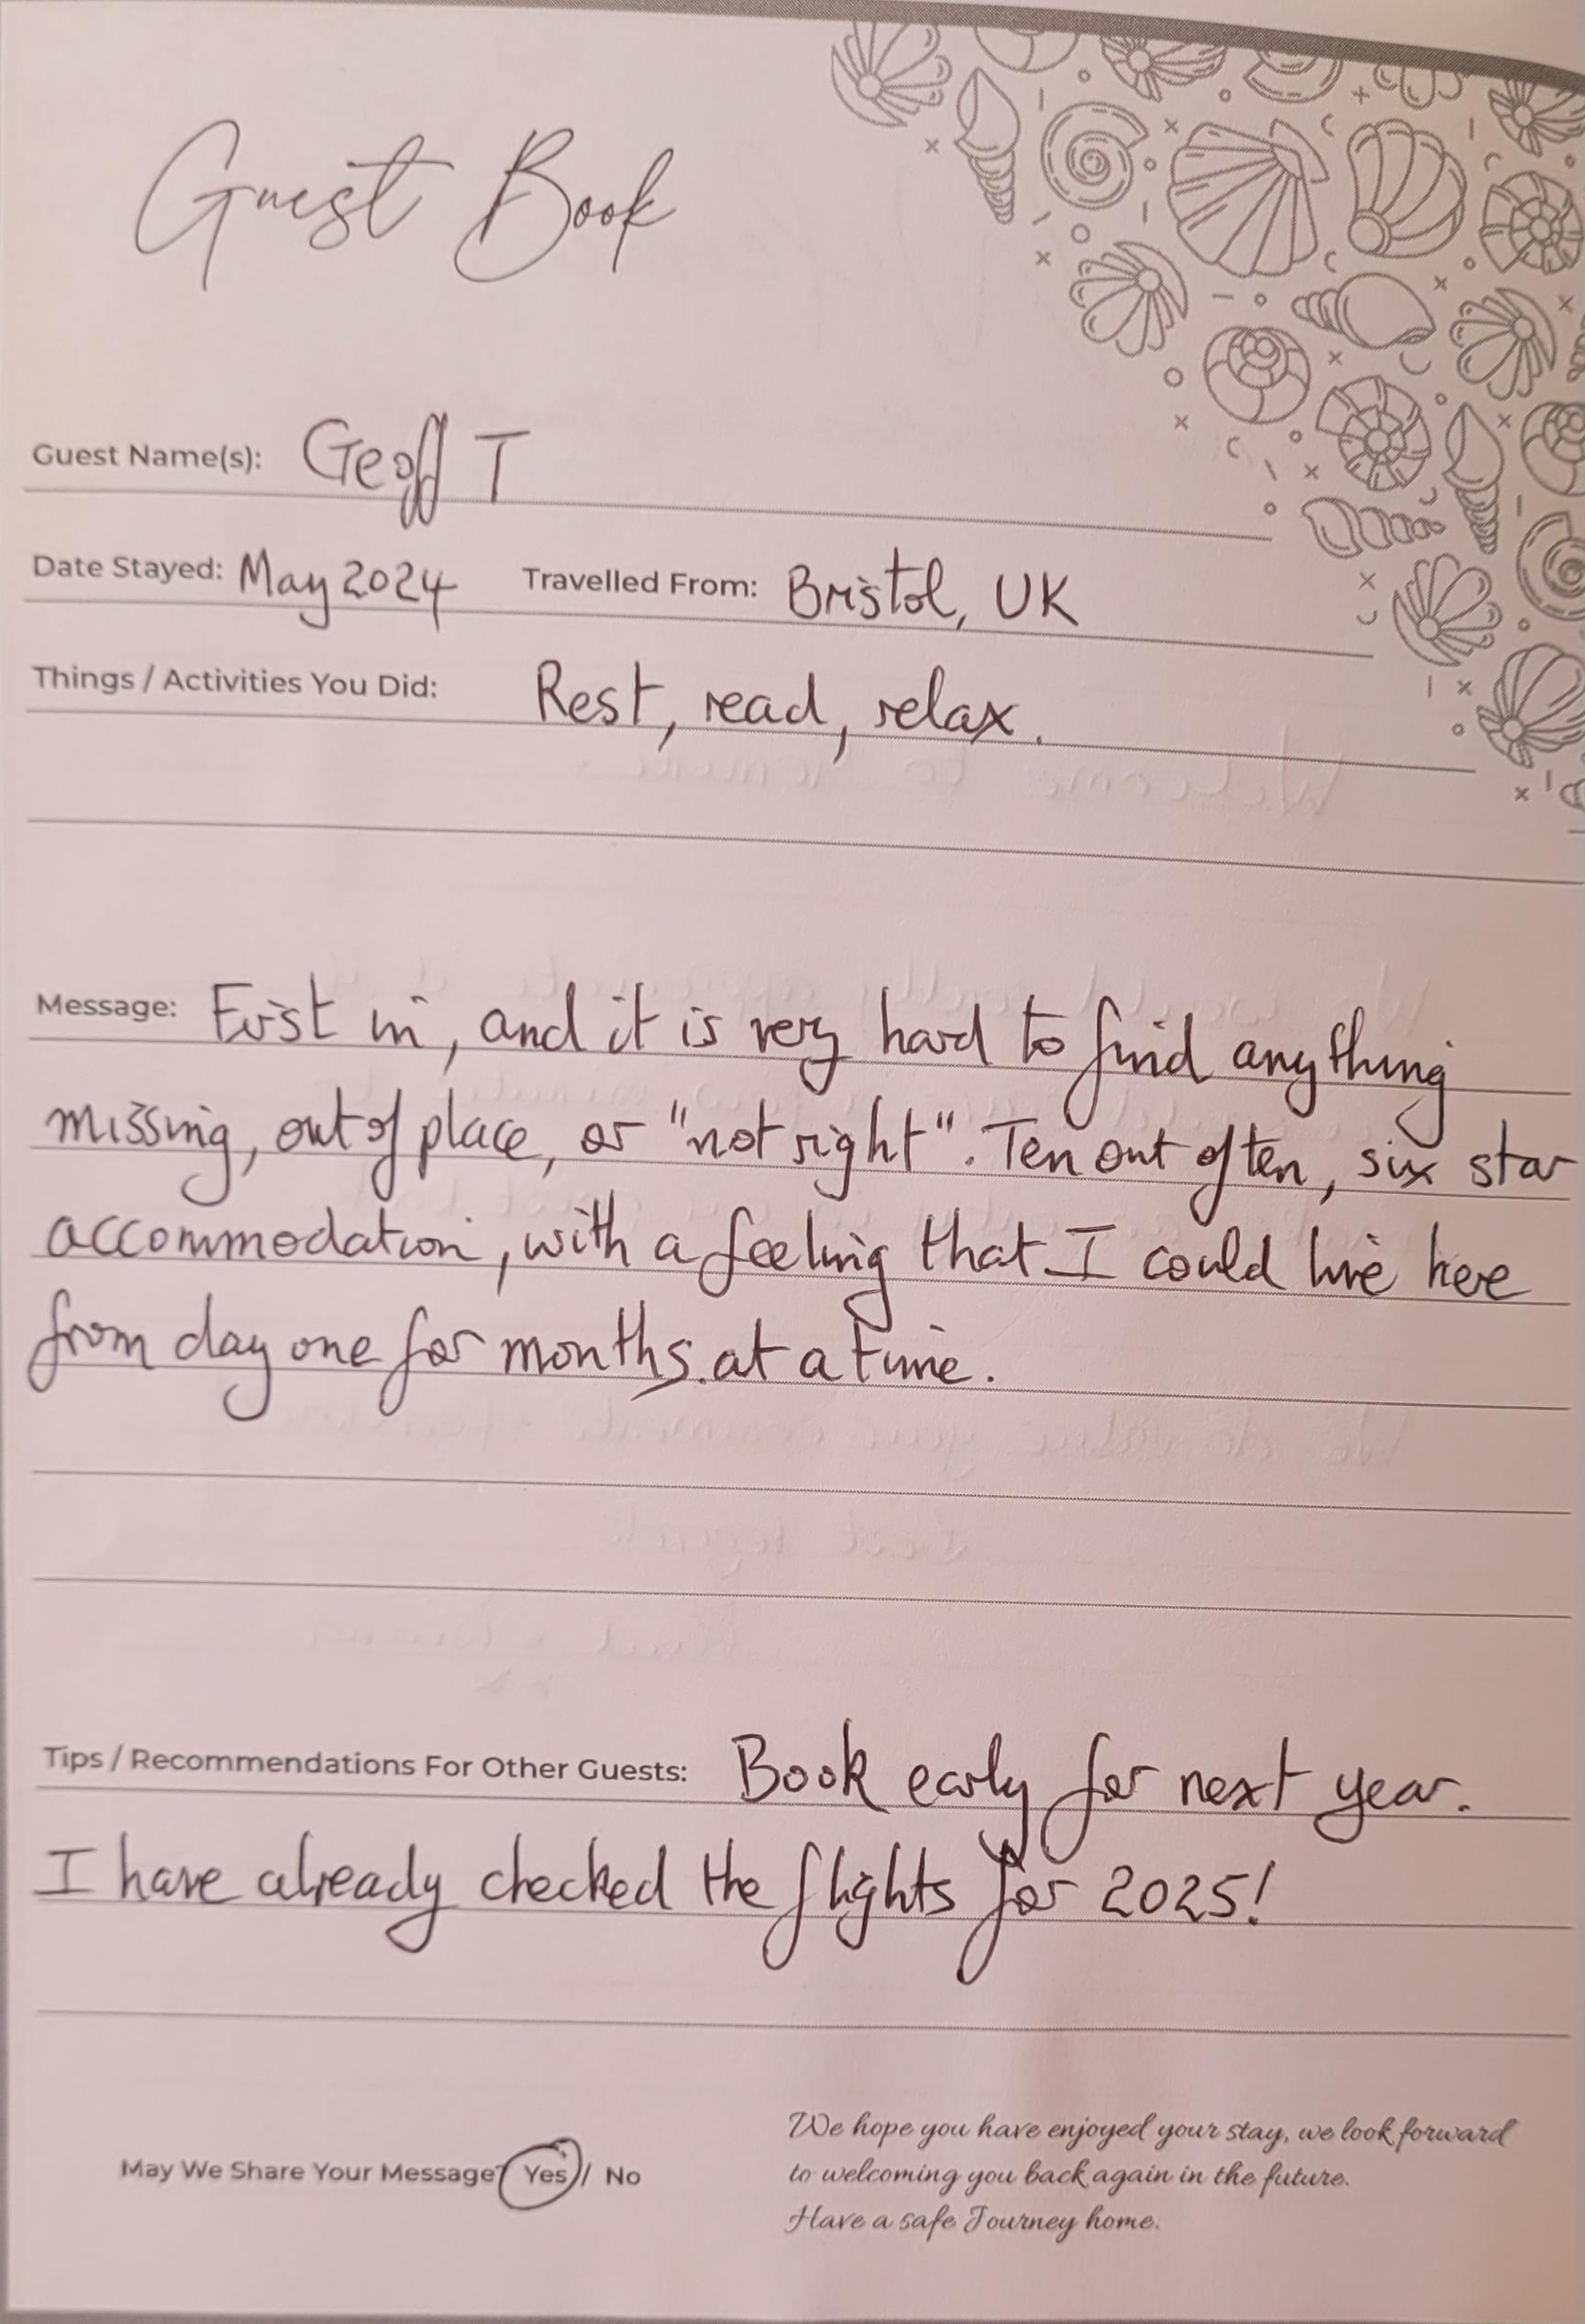 Guest Book
Guest Name(s): Geoff T
Date Stayed: May 2024 Travelled From: Bristol, UK
Things / Activities You Did: Rest, read, relax.
Message: First in, and it is very hard to find anything
missing, out of place, or "not right". Ten out of ten, six star
accommodation, with a feeling that I could live here
from day one for months.at a time.
Tips / Recommendations For Other Guests: Book early for next year.
I have already checked the flights for 2025!
May We Share Your Message? Yes / No
We hope you have enjoyed your stay, we look forward
to welcoming you back again in the future.
Have a safe Journey home.